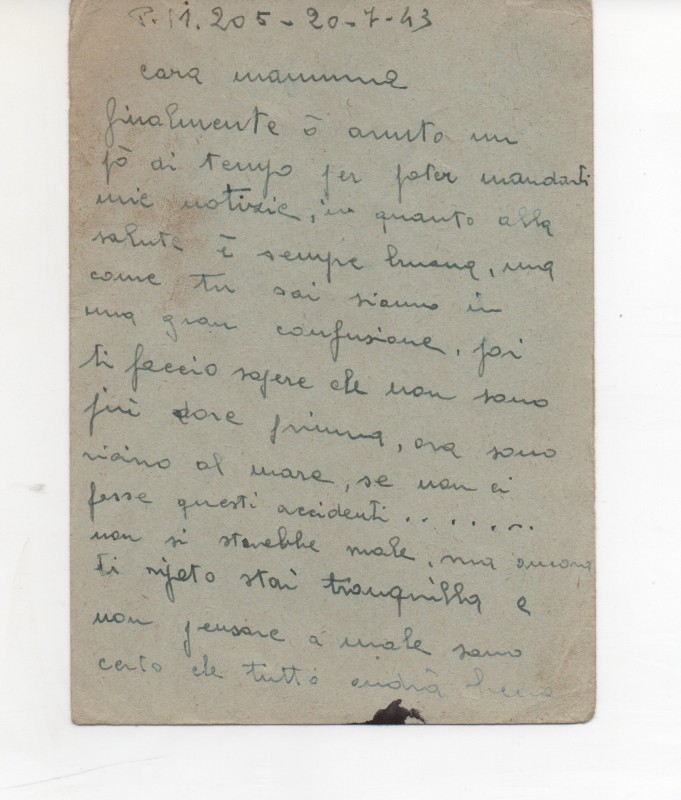 P.M. 205 - 20-7-43
cara mamma
finalmente ò avuto un
pò di tempo per poter mandarti
mie notizie, in quanto alla
salute è sempre buona, ma
come tu sai siamo in
una gran confusione, poi
ti faccio sapere che non sono
più dove prima, ora sono
vicino al mare, se non ci
fosse questi accidenti.......
non si starebbe male, ma ancora
ti ripeto stai tranquilla e
non pensare a male sono
certo che tutto andrà bene